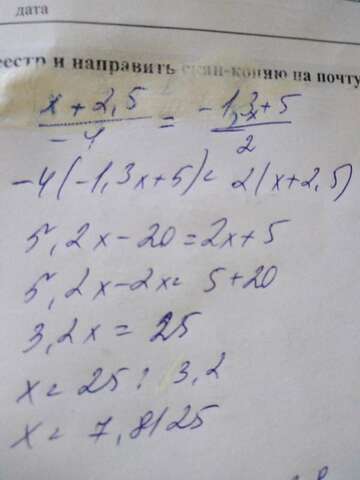 дата
еестр и направить скан-копию на почту
x + 2,5 / -4 = -1,3x + 5 / 2
-4(-1,3x+5) = 2(x+2,5)
5,2x - 20 = 2x + 5
5,2x - 2x = 5 + 20
3,2x = 25
x = 25 : 3,2
x = 7,8125